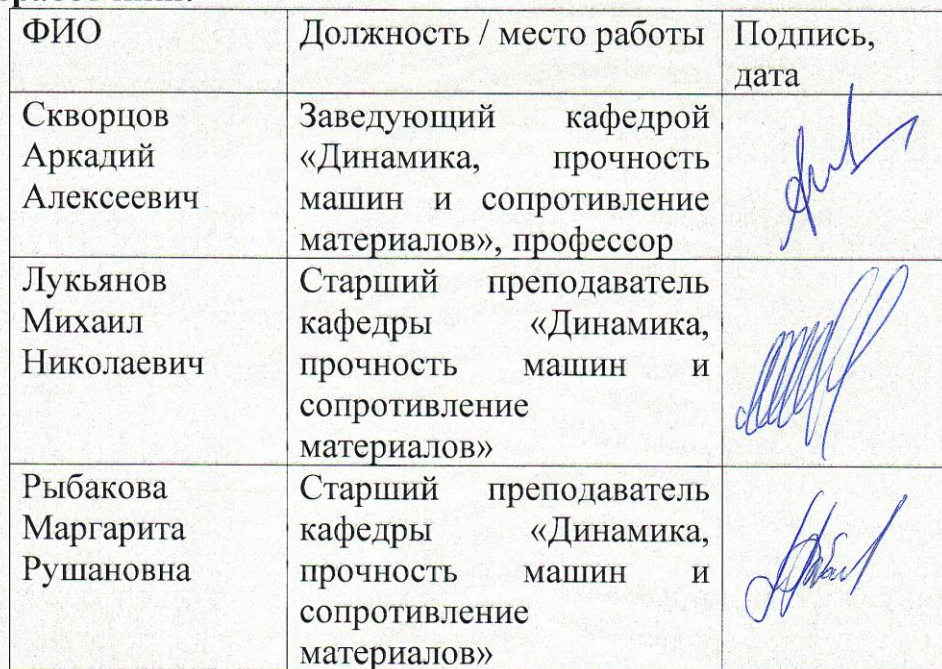 ФИО
Должность / место работы
Подпись,
дата
Скворцов
Аркадий
Алексеевич
Заведующий кафедрой
«Динамика, прочность
машин и сопротивление
материалов», профессор
Лукьянов
Михаил
Николаевич
Старший преподаватель
кафедры «Динамика,
прочность машин и
сопротивление
материалов»
Рыбакова
Маргарита
Рушановна
Старший преподаватель
кафедры «Динамика,
прочность машин и
сопротивление
материалов»